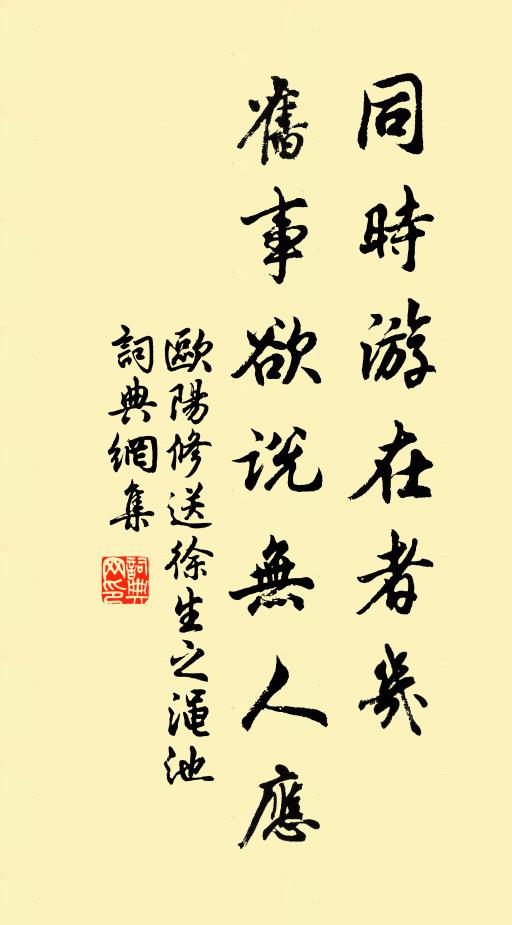 同時游在者幾
舊事欲説無人應
歐陽修送徐生之澠池
詞典網集
詞典網印